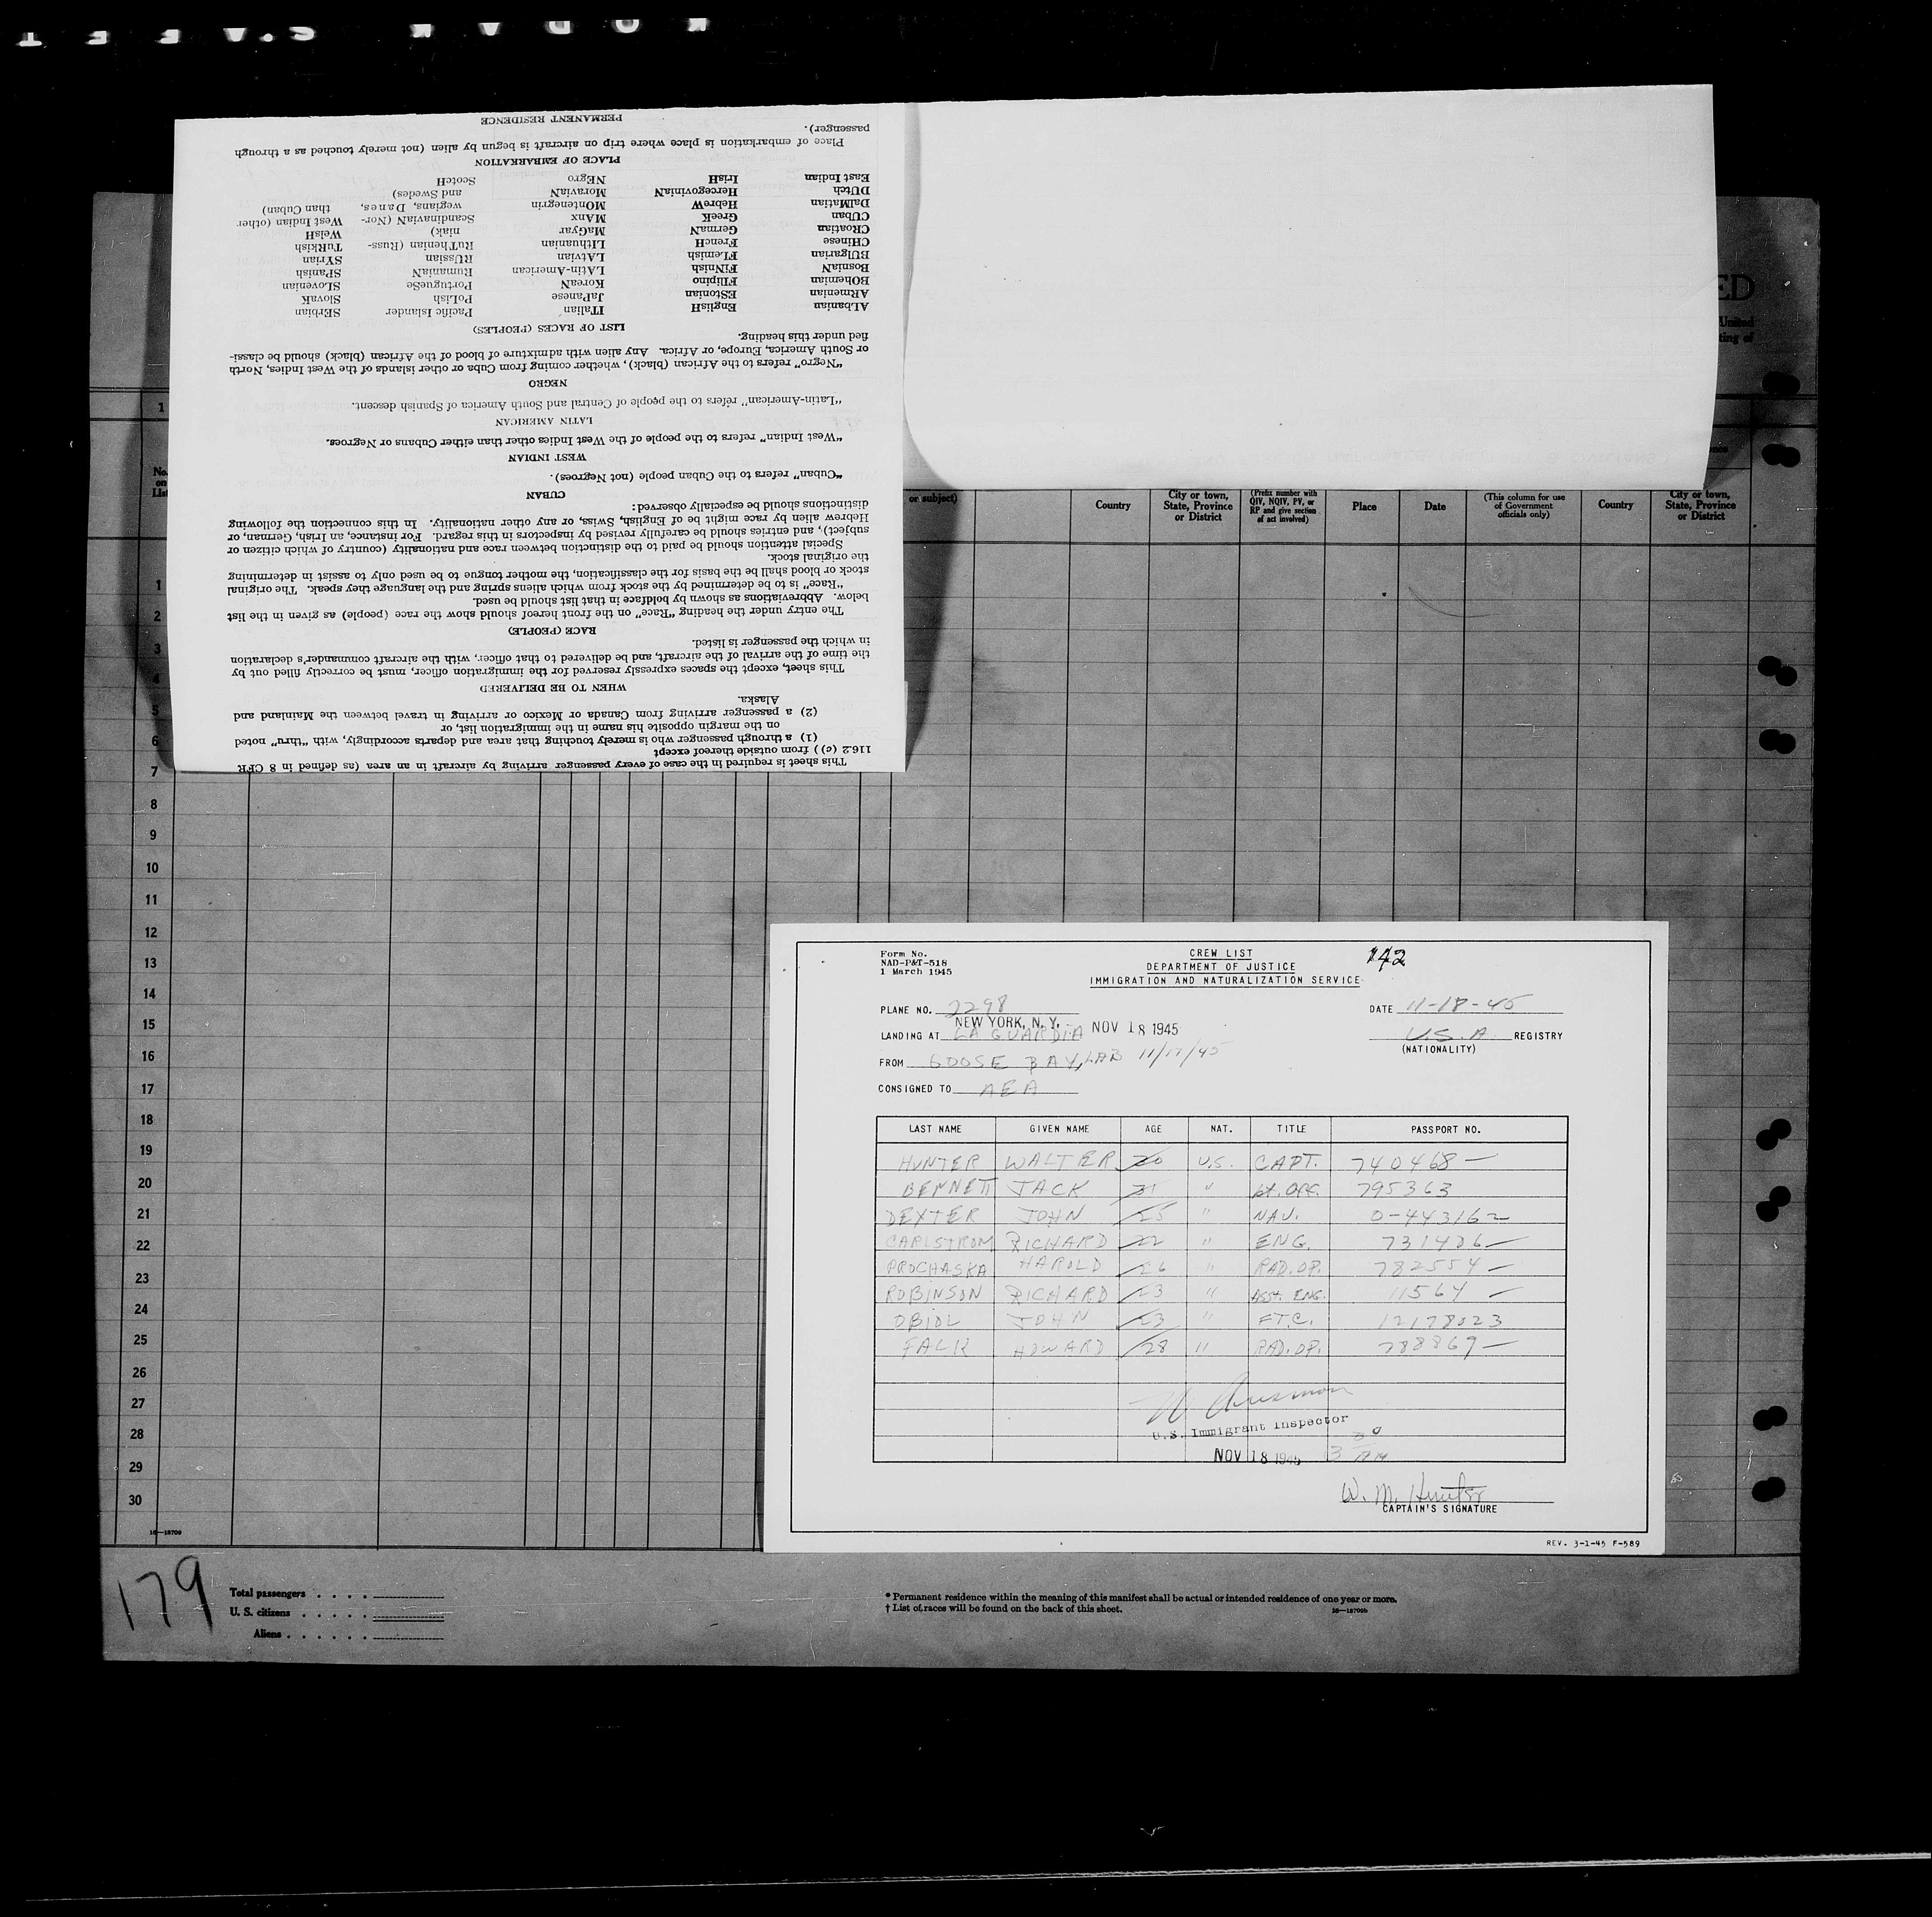 KODAK S.AFETY
PERMANENT RESIDENCE
passenger).
Place of embarkation is place where trip on aircraft is begun by alien (not merely touched as a through
PLACE OF EMBARKATION
East Indian IrisH NEgro ScotcH
DUtch HercegoviniaN MoraviaN and Swedes)
DalMatian HebreW MOntenegrin wegians, Danes, than Cuban)
CUban GreeK MAnx ScandinaviaN (Nor- West Indian (other
CRoatian GermaN MaGyar niak) WelsH
CHinese FrencH LIthuanian RuThenian (Russ- TuRkish
BUlgarian FLemish LAtvian RUssian SYrian
BosniaN FINnish LAtin-American RumaniaN SPanish
BOhemian FIlipino KoreaN PortugueSe SLovenian
ARmenian EStonian JaPanese PoLish SlovaK
ALbanian EnglisH ITalian Pacific Islander SErbian
LIST OF RACES (PEOPLES)
fied under this heading.
or South America, Europe, or Africa. Any alien with admixture of blood of the African (black) should be classi-
"Negro" refers to the African (black), whether coming from Cuba or other islands of the West Indies, North
NEGRO
"Latin-American" refers to the people of Central and South America of Spanish descent.
LATIN AMERICAN
"West Indian" refers to the people of the West Indies other than either Cubans or Negroes.
WEST INDIAN
"Cuban" refers to the Cuban people (not Negroes).
CUBAN
distinctions should be especially observed:
Hebrew alien by race might be of English, Swiss, or any other nationality. In this connection the following
subject), and entries should be carefully revised by inspectors in this regard. For instance, an Irish, German, or
Special attention should be paid to the distinction between race and nationality (country of which citizen or
the original stock.
stock or blood shall be the basis for the classification, the mother tongue to be used only to assist in determining
"Race" is to be determined by the stock from which aliens spring and the language they speak. The original
below. Abbreviations as shown by boldface in that list should be used.
The entry under the heading "Race" on the front hereof should show the race (people) as given in the list
RACE (PEOPLE)
in which the passenger is listed.
the time of the arrival of the aircraft, and be delivered to that officer, with the aircraft commander's declaration
This sheet, except the spaces expressly reserved for the immigration officer, must be correctly filled out by
WHEN TO BE DELIVERED
Alaska.
(2) a passenger arriving from Canada or Mexico or arriving in travel between the Mainland and
on the margin opposite his name in the immigration list, or
(1) a through passenger who is merely touching that area and departs accordingly, with "thru" noted
116.2 (c)) from outside thereof except
This sheet is required in the case of every passenger arriving by aircraft in an area (as defined in 8 CFR
ED
United
ting of
1
No. on List
or subject)
Country
City or town, State, Province or District
(Prefix number with QIV, NQIV, PV, or RP and give section of act involved)
Place
Date
(This column for use of Government officials only)
Country
City or town, State, Province or District
1
2
3
4
5
6
7
8
9
10
11
12
13
14
15
16
17
18
19
20
21
22
23
24
25
26
27
28
29
30
16—18709
Form No.
NAD-P&T-518
1 March 1945
CREW LIST
DEPARTMENT OF JUSTICE
IMMIGRATION AND NATURALIZATION SERVICE
142
PLANE NO. 2298
DATE 11-18-45
NEW YORK, N.Y. NOV 18 1945
LANDING AT LA GUARDIA
U.S.A REGISTRY
(NATIONALITY)
FROM GOOSE BAY, LAB 11/17/45
CONSIGNED TO AEA
LAST NAME GIVEN NAME AGE NAT. TITLE PASSPORT NO.
HUNTER WALTER 30 U.S. CAPT. 740468 —
BENNETT JACK " 795363
DEXTER JOHN 25 " NAV. 0-443162
CARLSTROM RICHARD 22 " ENG. 731426 —
PROCHASKA HAROLD 26 " RAD. OP. 782554 —
ROBINSON RICHARD 23 " ASST. ENG. 11564 —
OBIOL JOHN 23 " F.T.C. 12178023
FALK HOWARD 28 " RAD. OP. 788869 —
U.S. Immigrant Inspector
NOV 18 1945 3 30
W. M. Hunter
CAPTAIN'S SIGNATURE
REV. 3-1-45 F-589
179
Total passengers
U. S. citizens
Aliens
* Permanent residence within the meaning of this manifest shall be actual or intended residence of one year or more.
† List of races will be found on the back of this sheet.
16—18709b